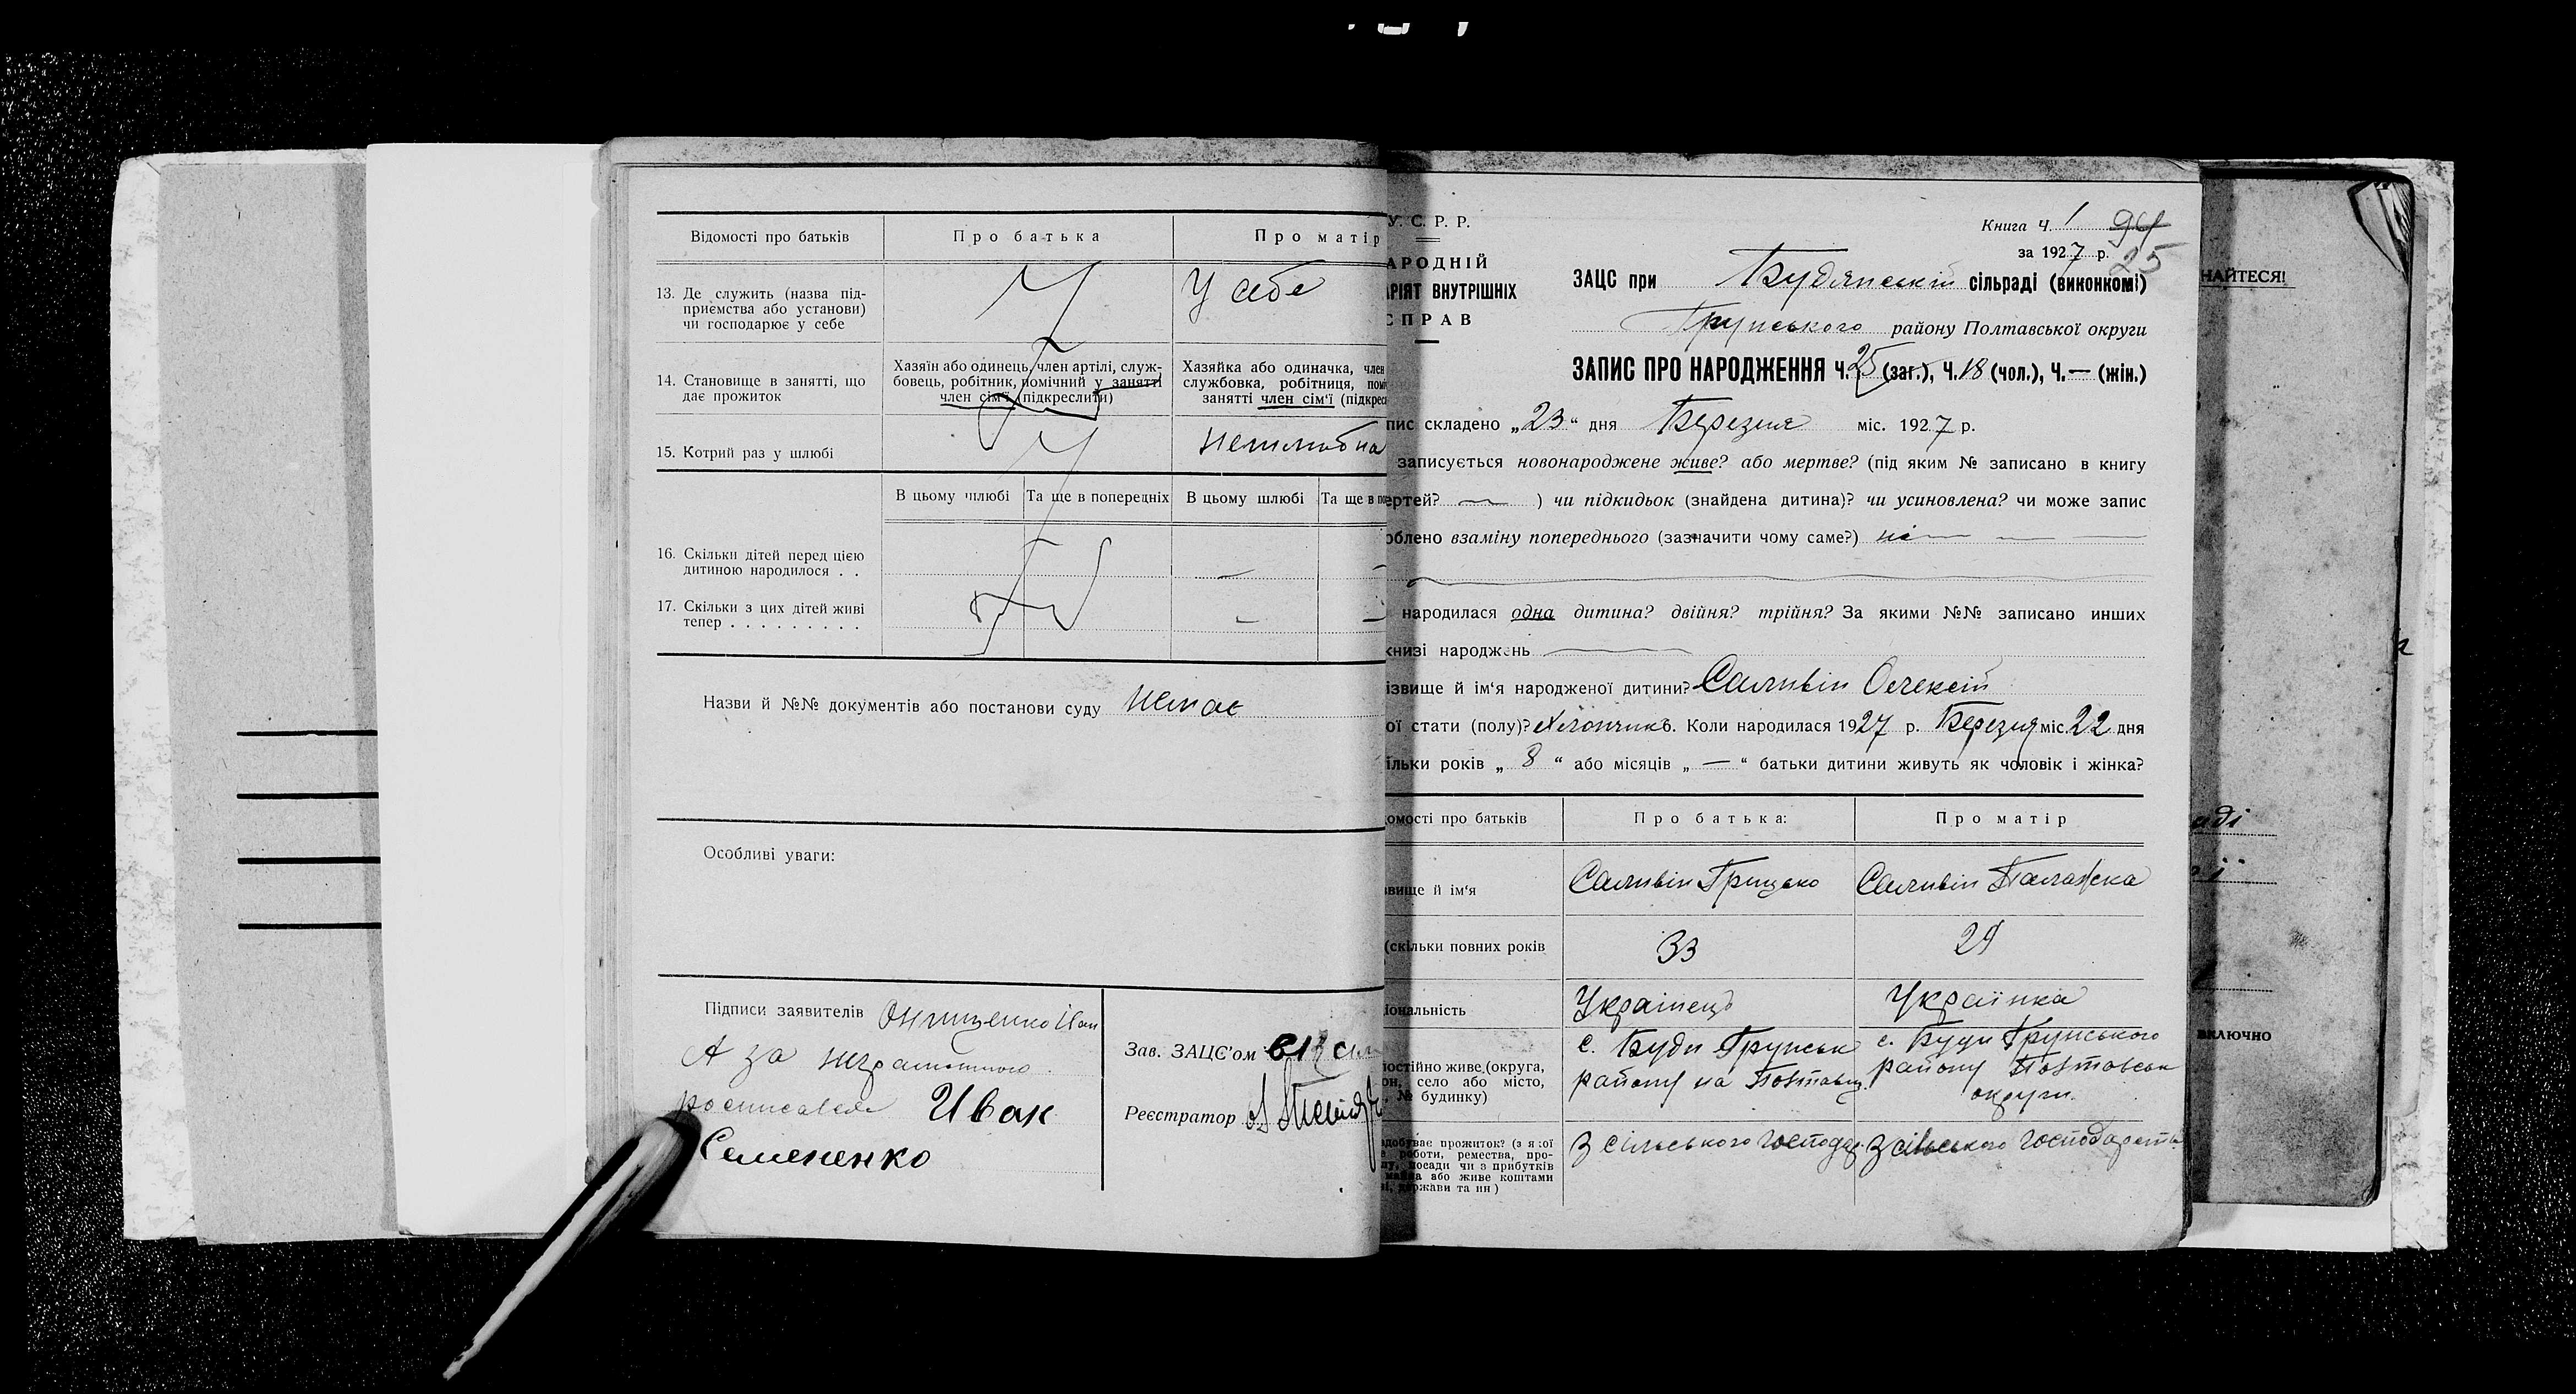 Відомості про батьків
Про батька
Про матір
13. Де служить (назва під-
приємства або установи)
чи господарює у себе
У себе
14. Становище в занятті, що
дає прожиток
Хазяїн або одинець, член артілі, служ-
бовець, робітник, помічний у занятті
член сім'ї (підкреслити)
Хазяйка або одиначка, член
службовка, робітниця, пом
занятті член сім'ї (підкрес
15. Котрий раз у шлюбі
Нешлюбна
В цьому шлюбі
Та ще в попередніх
В цьому шлюбі
Та ще в по
16. Скільки дітей перед цією
дитиною народилося . .
17. Скільки з цих дітей живі
тепер . . . . . . . . .
Назви й №№ документів або постанови суду немає
Особливі уваги:
Підписи заявителів Онищенко Іван
А за неграмотного
росписався Иван
Семененко
Зав. ЗАЦС'ом
Реєстратор
У. С. Р. Р.
АРОДНІЙ
РІЯТ ВНУТРІШНІХ
СПРАВ
Книга Ч. 1
94
за 1927 р.
25
ЗАЦС при Будянській сільраді (виконкомі)
Грунського району Полтавської округи
ЗАПИС ПРО НАРОДЖЕННЯ Ч. 25 (заг.), Ч. 18 (чол.), Ч. — (жін.)
пис складено „23“ дня Березня міс. 1927 р.
записується новонароджене живе? або мертве? (під яким № записано в книгу
ертей? — ) чи підкидьок (знайдена дитина)? чи усиновлена? чи може запис
облено взаміну попереднього (зазначити чому саме?) ні — — —
народилася одна дитина? двійня? трійня? За якими №№ записано инших
книзі народжень
ізвище й ім'я народженої дитини? Саливін Олексій
ої стати (полу)? Хлопчик. Коли народилася 1927 р. Березня міс. 22 дня
ільки років „ 8 “ або місяців „ — “ батьки дитини живуть як чоловік і жінка?
омості про батьків
Про батька:
Про матір
вище й ім'я
Саливін Грицько
Саливін Палажка
(скільки повних років
33
29
іональність
Українець
Українка
остійно живе (округа,
он, село або місто,
№ будинку)
с. Буди Грунськ
району на Полтавщ
с. Буди Грунського
району Полтавськ
округи.
здобуває прожиток? (з якої
роботи, ремества, про-
посади чи з прибутків
майна або живе коштами
держави та ин)
З сільського господар
З сільського господарства
НАЙТЕСЯ!
аді
ої
ВКЛЮЧНО